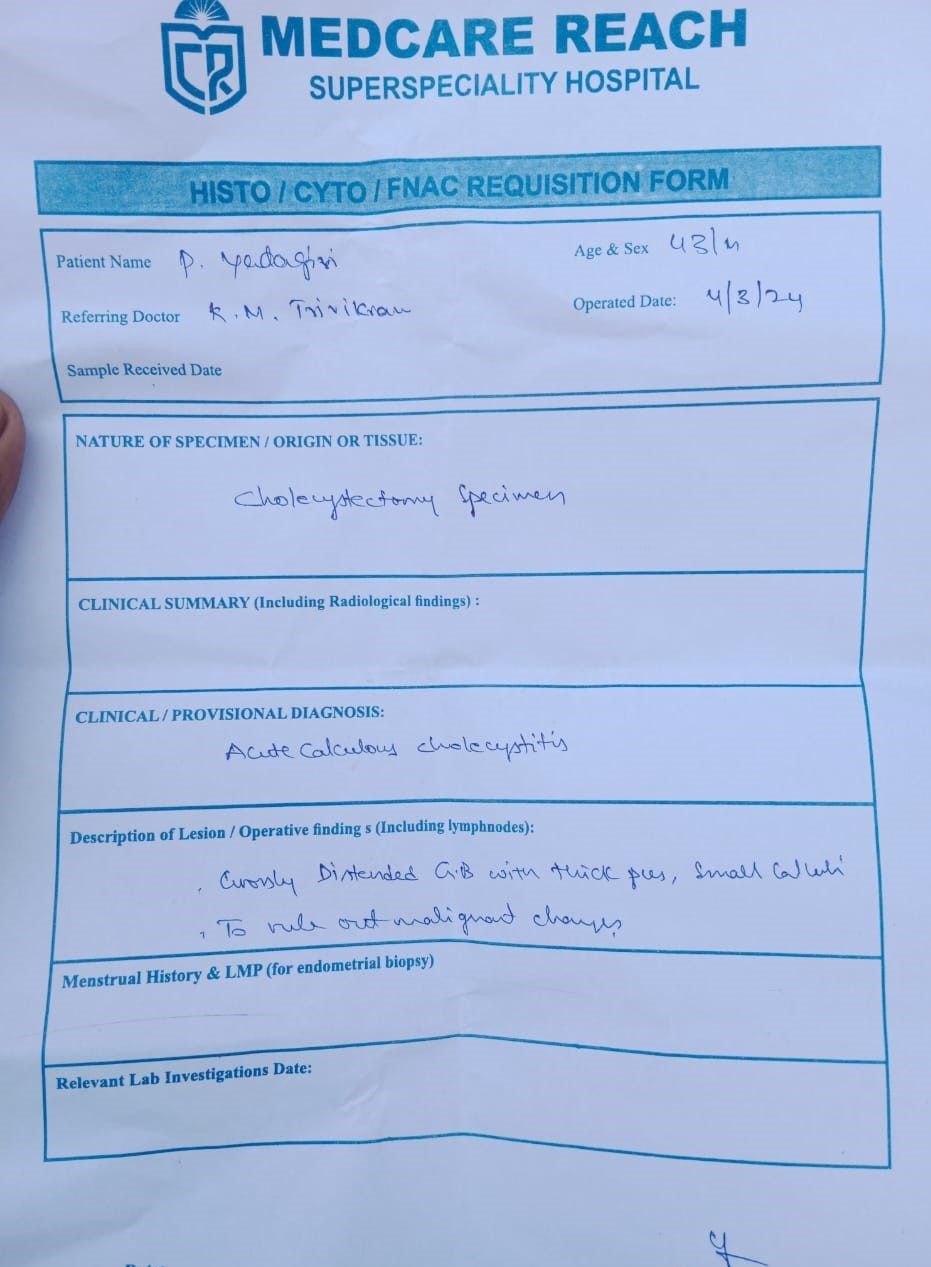 MEDCARE REACH
SUPERSPECIALITY HOSPITAL
HISTO / CYTO / FNAC REQUISITION FORM
Patient Name P. Yadagiri
Age & Sex 43/M
Referring Doctor K. M. Trivikram
Operated Date: 4/3/24
Sample Received Date
NATURE OF SPECIMEN / ORIGIN OR TISSUE:
Cholecystectomy Specimen
CLINICAL SUMMARY (Including Radiological findings) :
CLINICAL / PROVISIONAL DIAGNOSIS:
Acute Calculous cholecystitis
Description of Lesion / Operative finding s (Including lymphnodes):
. Grossly Distended G.B with thick pus, Small Calculi
, To rule out malignant changes
Menstrual History & LMP (for endometrial biopsy)
Relevant Lab Investigations Date: